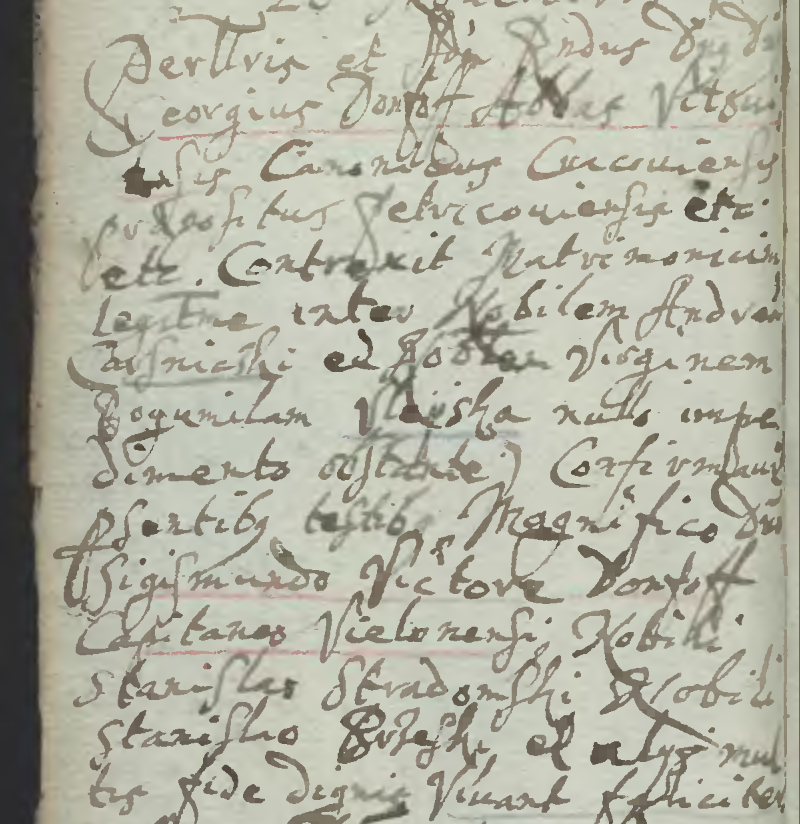 Perllris et Adm Rndus Dng D
Georgius Donhoff Abbas Vitoui
ensis Canonicus Cracouiensis
præpositus Petricouiensis etc.
etc. Contraxit Matrimonium
Legitime inter Nobilem Andream
et Nobilem Virginem
Bogumilam nullo impe
dimento obstante) Confirmaui
psentibg testibg Magnifico Dno
Sigismundo Victore Donhoff
Capitaneo Vielunensi, Nobili
Stanislao Stradomski Nobili
Stanislao et alys mul
tis fide dignis Viuant foeliciter